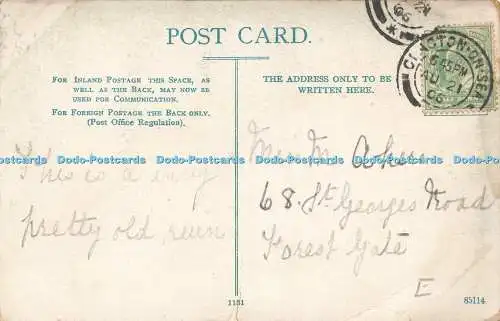 POST CARD.
FOR INLAND POSTAGE THIS SPACE, AS
WELL AS THE BACK, MAY NOW BE
USED FOR COMMUNICATION.
FOR FOREIGN POSTAGE THE BACK ONLY.
(Post Office Regulation).
THE ADDRESS ONLY TO BE
WRITTEN HERE.
CLACTON-ON-SEA
45PM
AU 21
06
06
Dodo-Postcards Dodo-Postcards Dodo-Postcards Dodo-Postcards Dodo-Postcards
This is a very
pretty old ruin
Miss M. Akers
68. St. Georges Road
Forest Gate
E
1131
85114